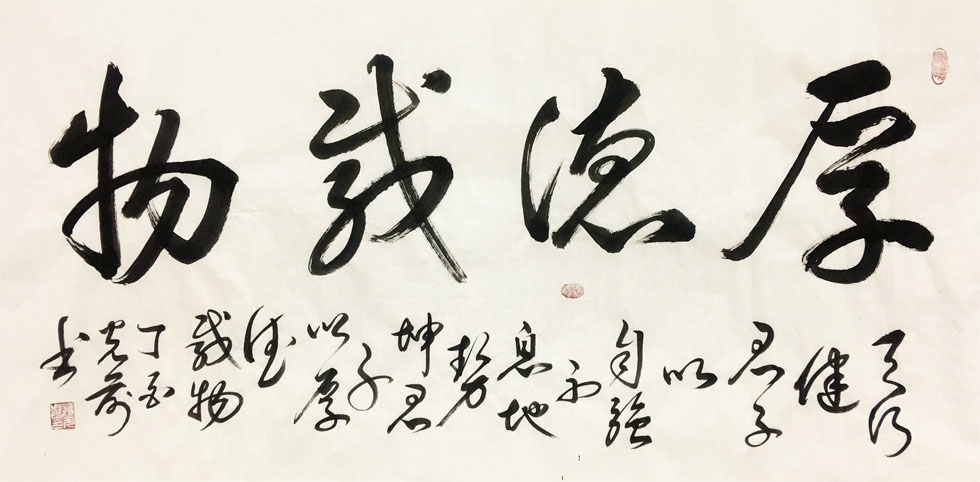 厚德载物
天行
健
君子
以
自强
不
息地
势
坤君
子
以厚
德
载物
丁酉
书